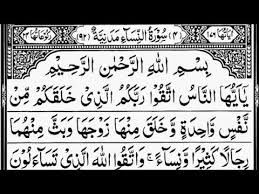 اٰيَاتُهَا ١٧٦ (٤) سُوْرَةُ النِّسَآءِ مَدَنِيَّةٌ (٩٢) رُكُوْعَاتُهَا ٢٤
بِسْمِ اللّٰهِ الرَّحْمٰنِ الرَّحِيْمِ
يٰۤاَيُّهَا النَّاسُ اتَّقُوْا رَبَّكُمُ الَّذِيْ خَلَقَكُمْ مِّنْ
نَّفْسٍ وَّاحِدَةٍ وَّخَلَقَ مِنْهَا زَوْجَهَا وَبَثَّ مِنْهُمَا
رِجَالًا كَثِيْرًا وَّنِسَآءً ۚ وَاتَّقُوا اللّٰهَ الَّذِيْ تَسَآءَلُوْنَ